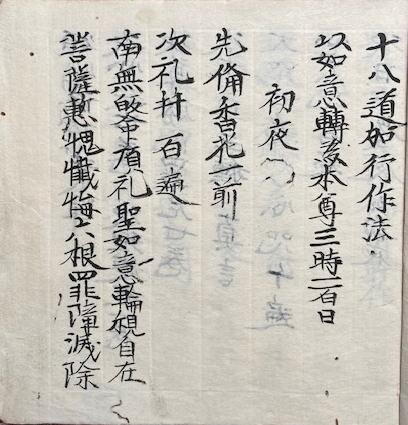 十八道加行作法
以如意轉為本尊三時一百日
初夜
先備香花一前
次礼井百遍
南無皈命頂礼聖如意輪観自在
菩薩慙愧懺悔六根罪障滅除